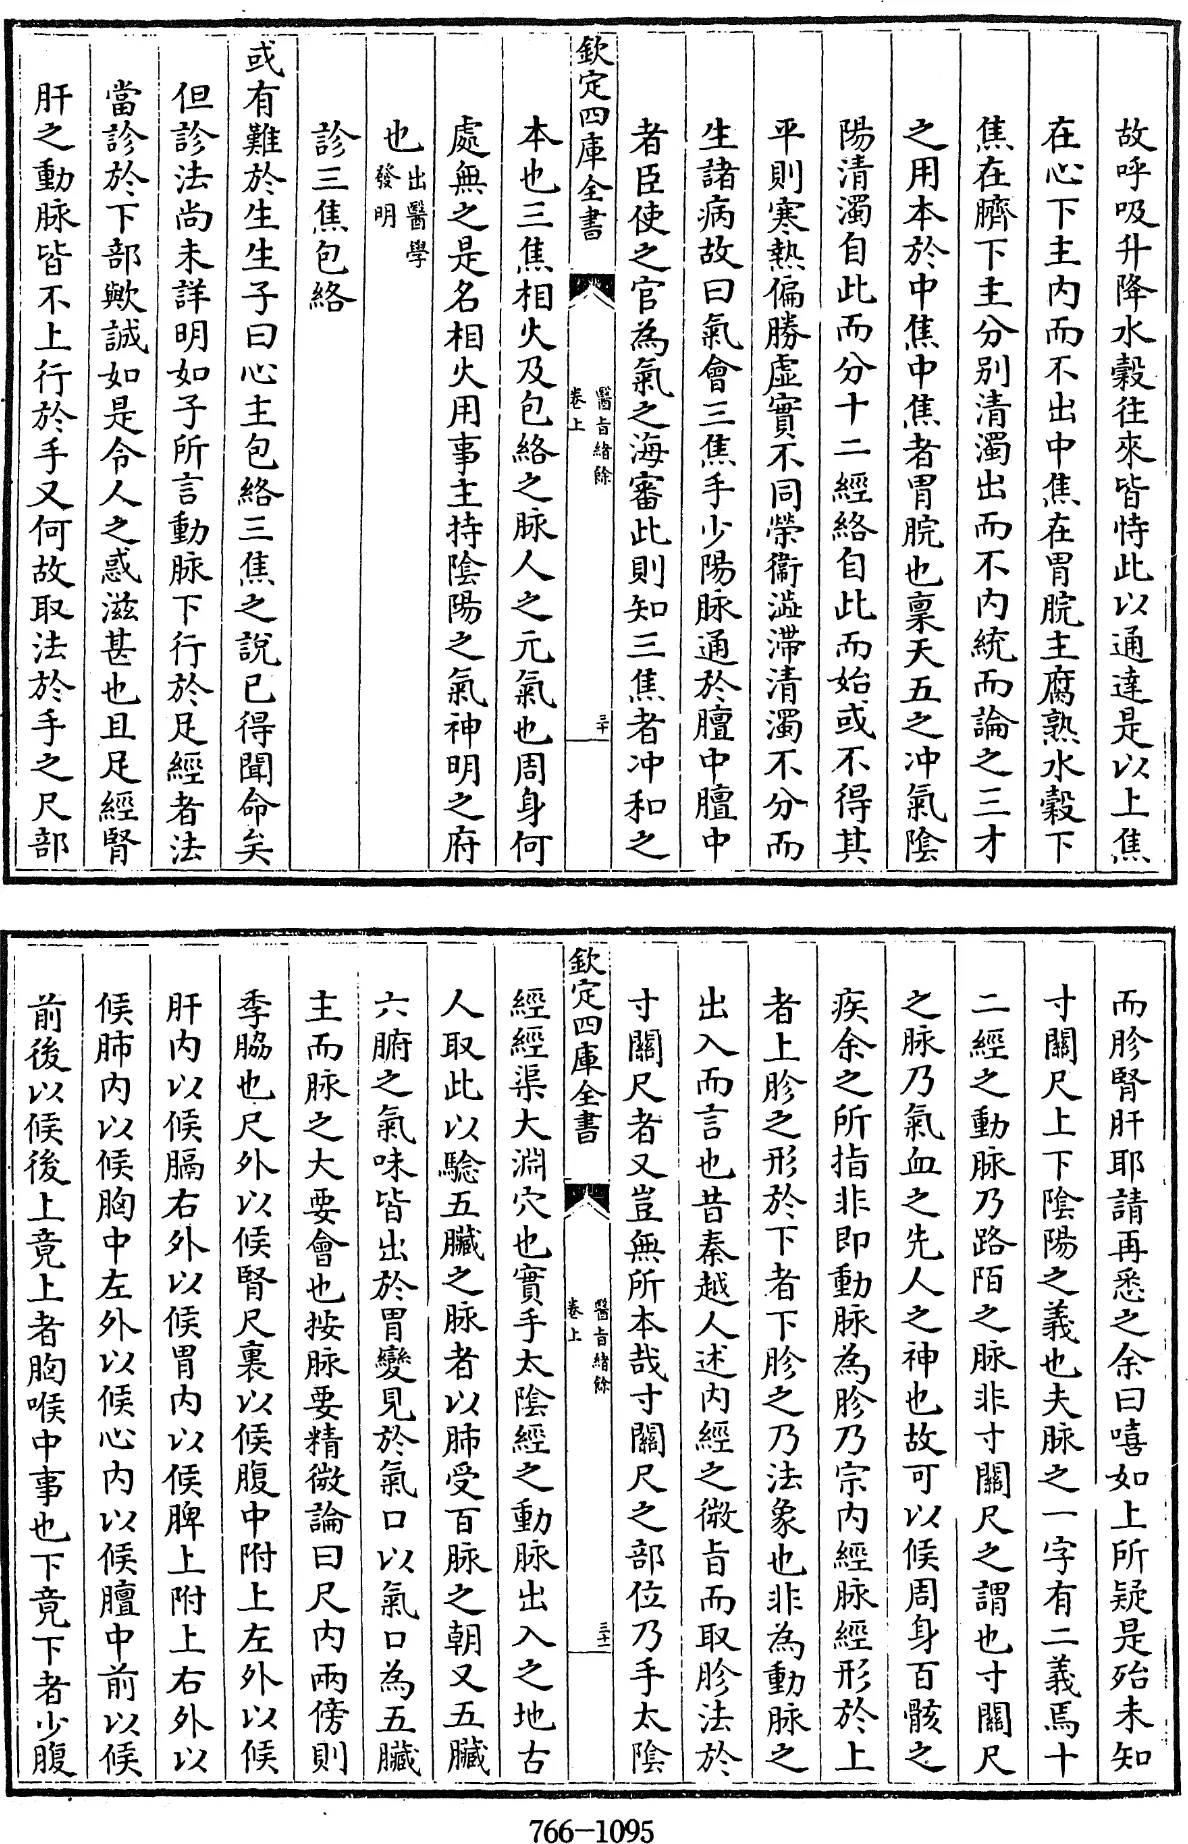 故呼吸升降水穀往來皆恃此以通達是以上焦
在心下主内而不出中焦在胃脘主腐熟水穀下
焦在臍下主分别清濁出而不内統而論之三才
之用本於中焦中焦者胃脘也禀天五之冲氣陰
陽清濁自此而分十二經絡自此而始或不得其
平則寒熱偏勝虚實不同榮衞澁滯清濁不分而
生諸病故曰氣會三焦手少陽脉通於膻中膻中
者臣使之官為氣之海審此則知三焦者冲和之
欽定四庫全書
醫旨緒餘
卷上
三十
本也三焦相火及包絡之脉人之元氣也周身何
處無之是名相火用事主持陰陽之氣神明之府
也出醫學
發明
診三焦包絡
或有難於生生子曰心主包絡三焦之說已得聞命矣
但診法尚未詳明如子所言動脉下行於足經者法
當診於下部歟誠如是令人之惑滋甚也且足經腎
肝之動脉皆不上行於手又何故取法於手之尺部
而胗腎肝耶請再悉之余曰嘻如上所疑是殆未知
寸關尺上下陰陽之義也夫脉之一字有二義焉十
二經之動脉乃路陌之脉非寸關尺之謂也寸關尺
之脉乃氣血之先人之神也故可以候周身百骸之
疾余之所指非即動脉為胗乃宗内經脉經形於上
者上胗之形於下者下胗之乃法象也非為動脉之
出入而言也昔秦越人述内經之微旨而取胗法於
寸關尺者又豈無所本哉寸關尺之部位乃手太陰
欽定四庫全書
醫旨緒餘
卷上
三十一
經經渠大淵穴也實手太陰經之動脉出入之地古
人取此以驗五臟之脉者以肺受百脉之朝又五臟
六腑之氣味皆出於胃變見於氣口以氣口為五臟
主而脉之大要會也按脉要精微論曰尺内兩傍則
季脇也尺外以候腎尺裏以候腹中附上左外以候
肝内以候膈右外以候胃内以候脾上附上右外以
候肺内以候胸中左外以候心内以候膻中前以候
前後以候後上竟上者胸喉中事也下竟下者少腹
766-1095